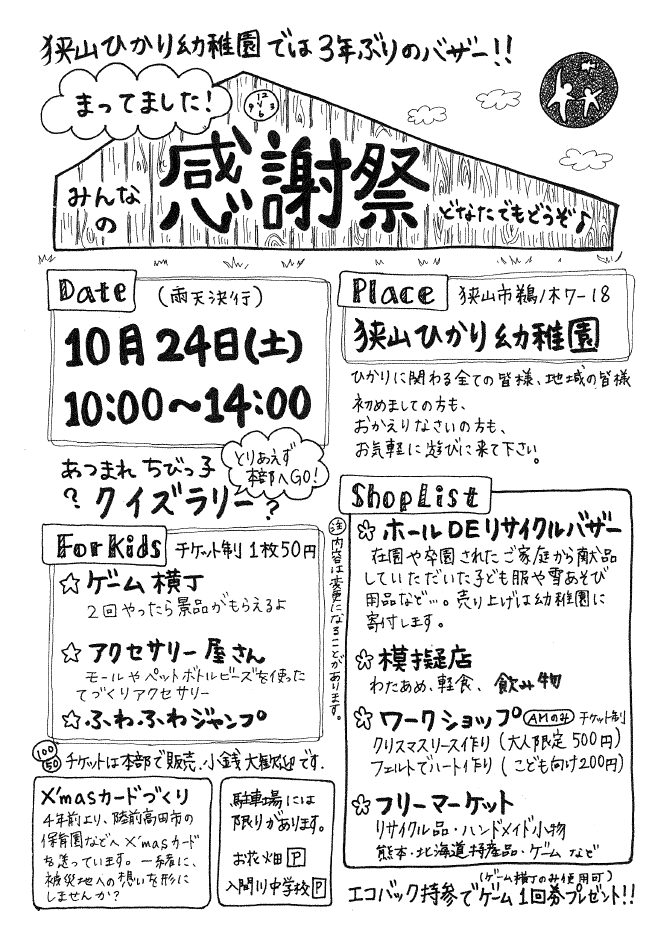 狭山ひかり幼稚園では3年ぶりのバザー!!
まってました!
12
9 3
6
みんなの
感謝祭
どなたでもどうぞ♪
Date (雨天決行)
10月24日(土)
10:00〜14:00
Place 狭山市鵜ノ木7-18
狭山ひかり幼稚園
ひかりに関わる全ての皆様、地域の皆様
初めましての方も、
おかえりなさいの方も、
お気軽に遊びに来て下さい。
あつまれ ちびっ子
? クイズラリー ?
とりあえず
本部へGO!
For Kids チケット制 1枚50円
☆ ゲーム横丁
2回やったら景品がもらえるよ
☆ アクセサリー屋さん
モールやペットボトルビーズを使った
てづくりアクセサリー
☆ ふわふわジャンプ
100
50
チケットは本部で販売.小銭大歓迎です.
注 内容は変更になることがあります。
Shop List
☆ ホールDEリサイクルバザー
在園や卒園されたご家庭から献品
していただいた子ども服や雪あそび
用品など…。売り上げは幼稚園に
寄付します。
☆ 模擬店
わたあめ、軽食、飲み物
☆ ワークショップ AMのみ チケット制
クリスマスリース作り (大人限定500円)
フェルトでハート作り (こども向け200円)
☆ フリーマーケット
リサイクル品・ハンドメイド小物
熊本・北海道特産品・ゲームなど
X'masカードづくり
4年前より、陸前高田市の
保育園などへX'masカード
を送っています。一緒に、
被災地への想いを形に
しませんか?
駐車場には
限りがあります。
お花畑 P
入間川中学校 P
(ゲーム横丁のみ使用可)
エコバック持参でゲーム1回券プレゼント!!